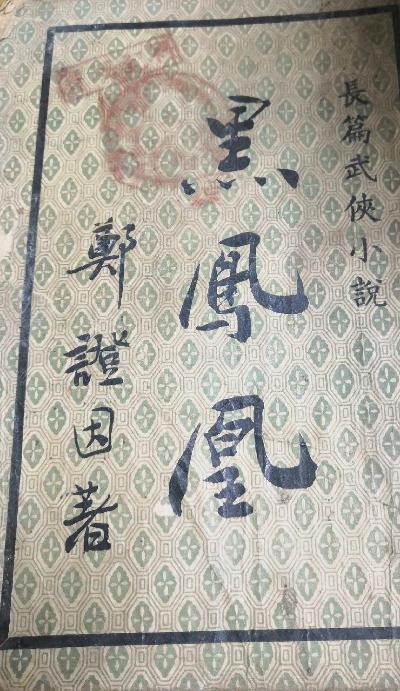 長篇武俠小說
黑鳳凰
鄭證因著